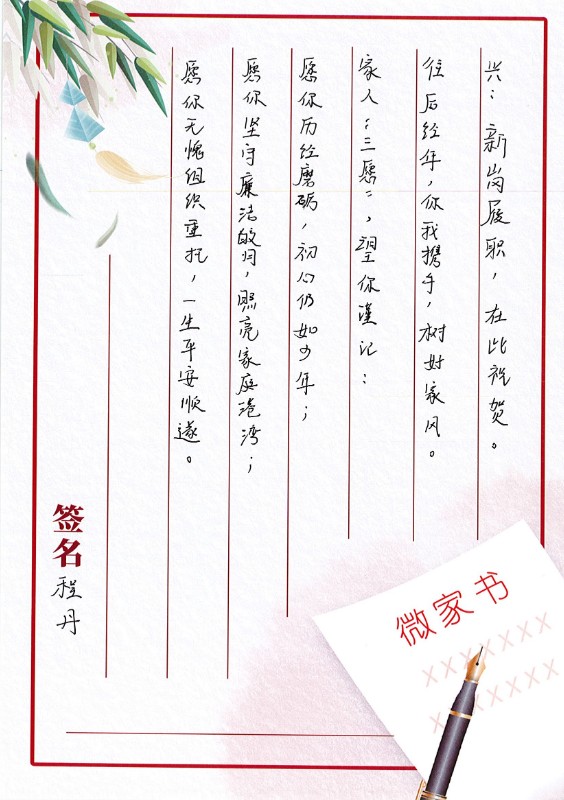 兴：新岗履职，在此祝贺。
往后经年，你我携手，树好家风。
家人“三愿”，望你谨记：
愿你历经磨砺，初心仍如少年；
愿你坚守廉洁皎月，照亮家庭港湾；
愿你无愧组织重托，一生平安顺遂。
签名
程丹
微家书
XXXXXXX
XXXXXXX